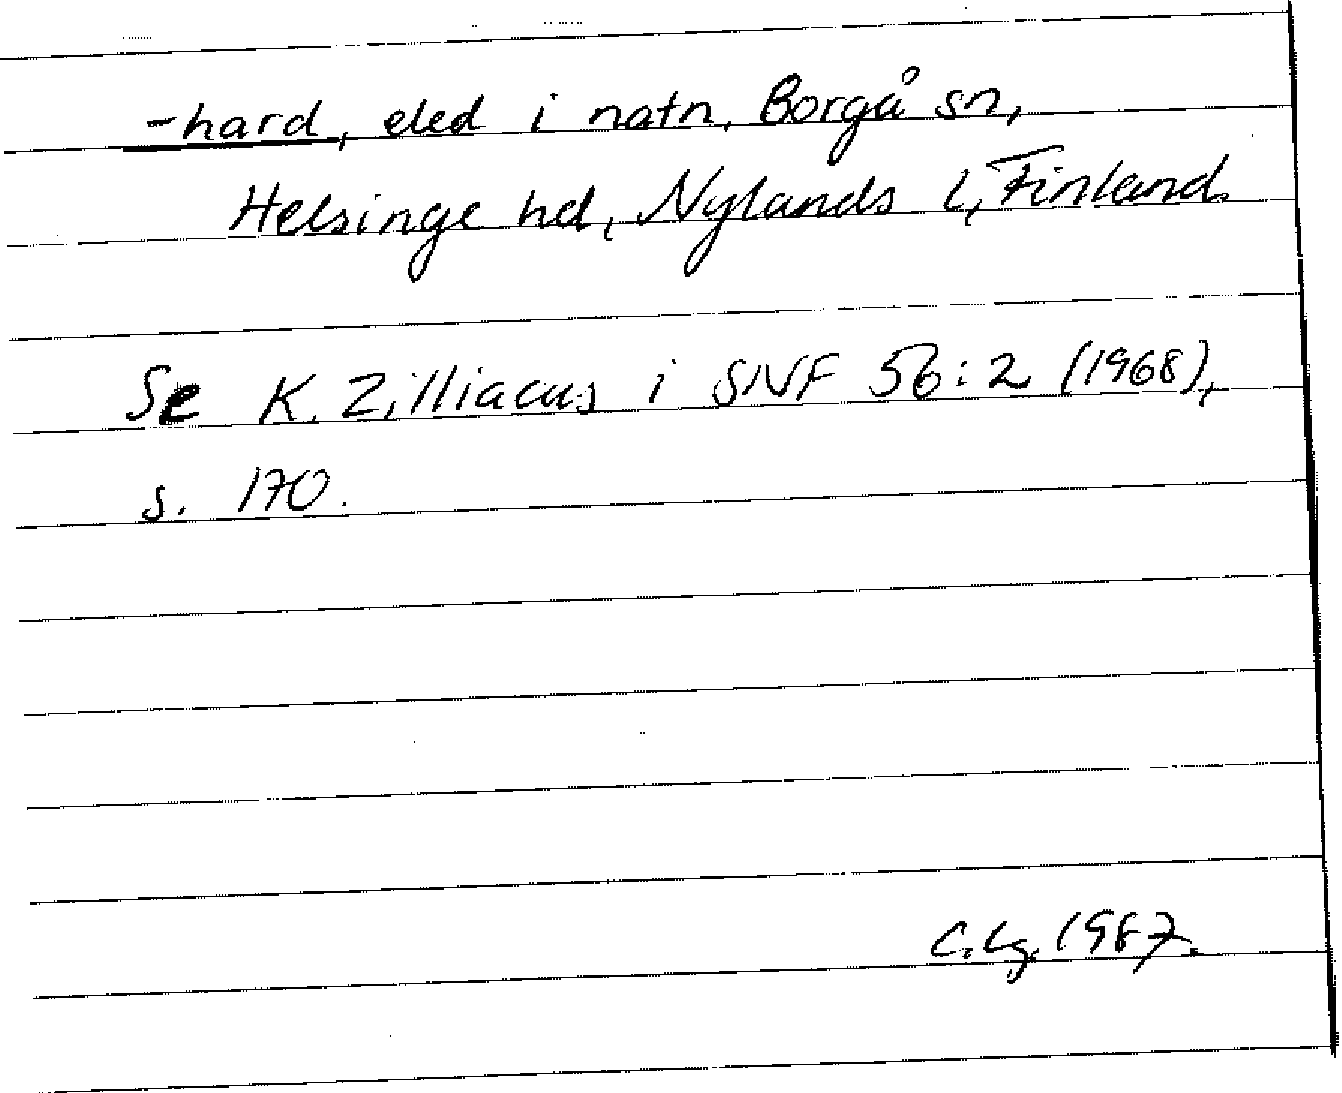 -hard, eled i natn, Borgå sn,
Helsinge hd, Nylands l, Finland.
Se K. Zilliacus i SNF 56:2 (1968),
s. 170.
C. Lg. 1987.